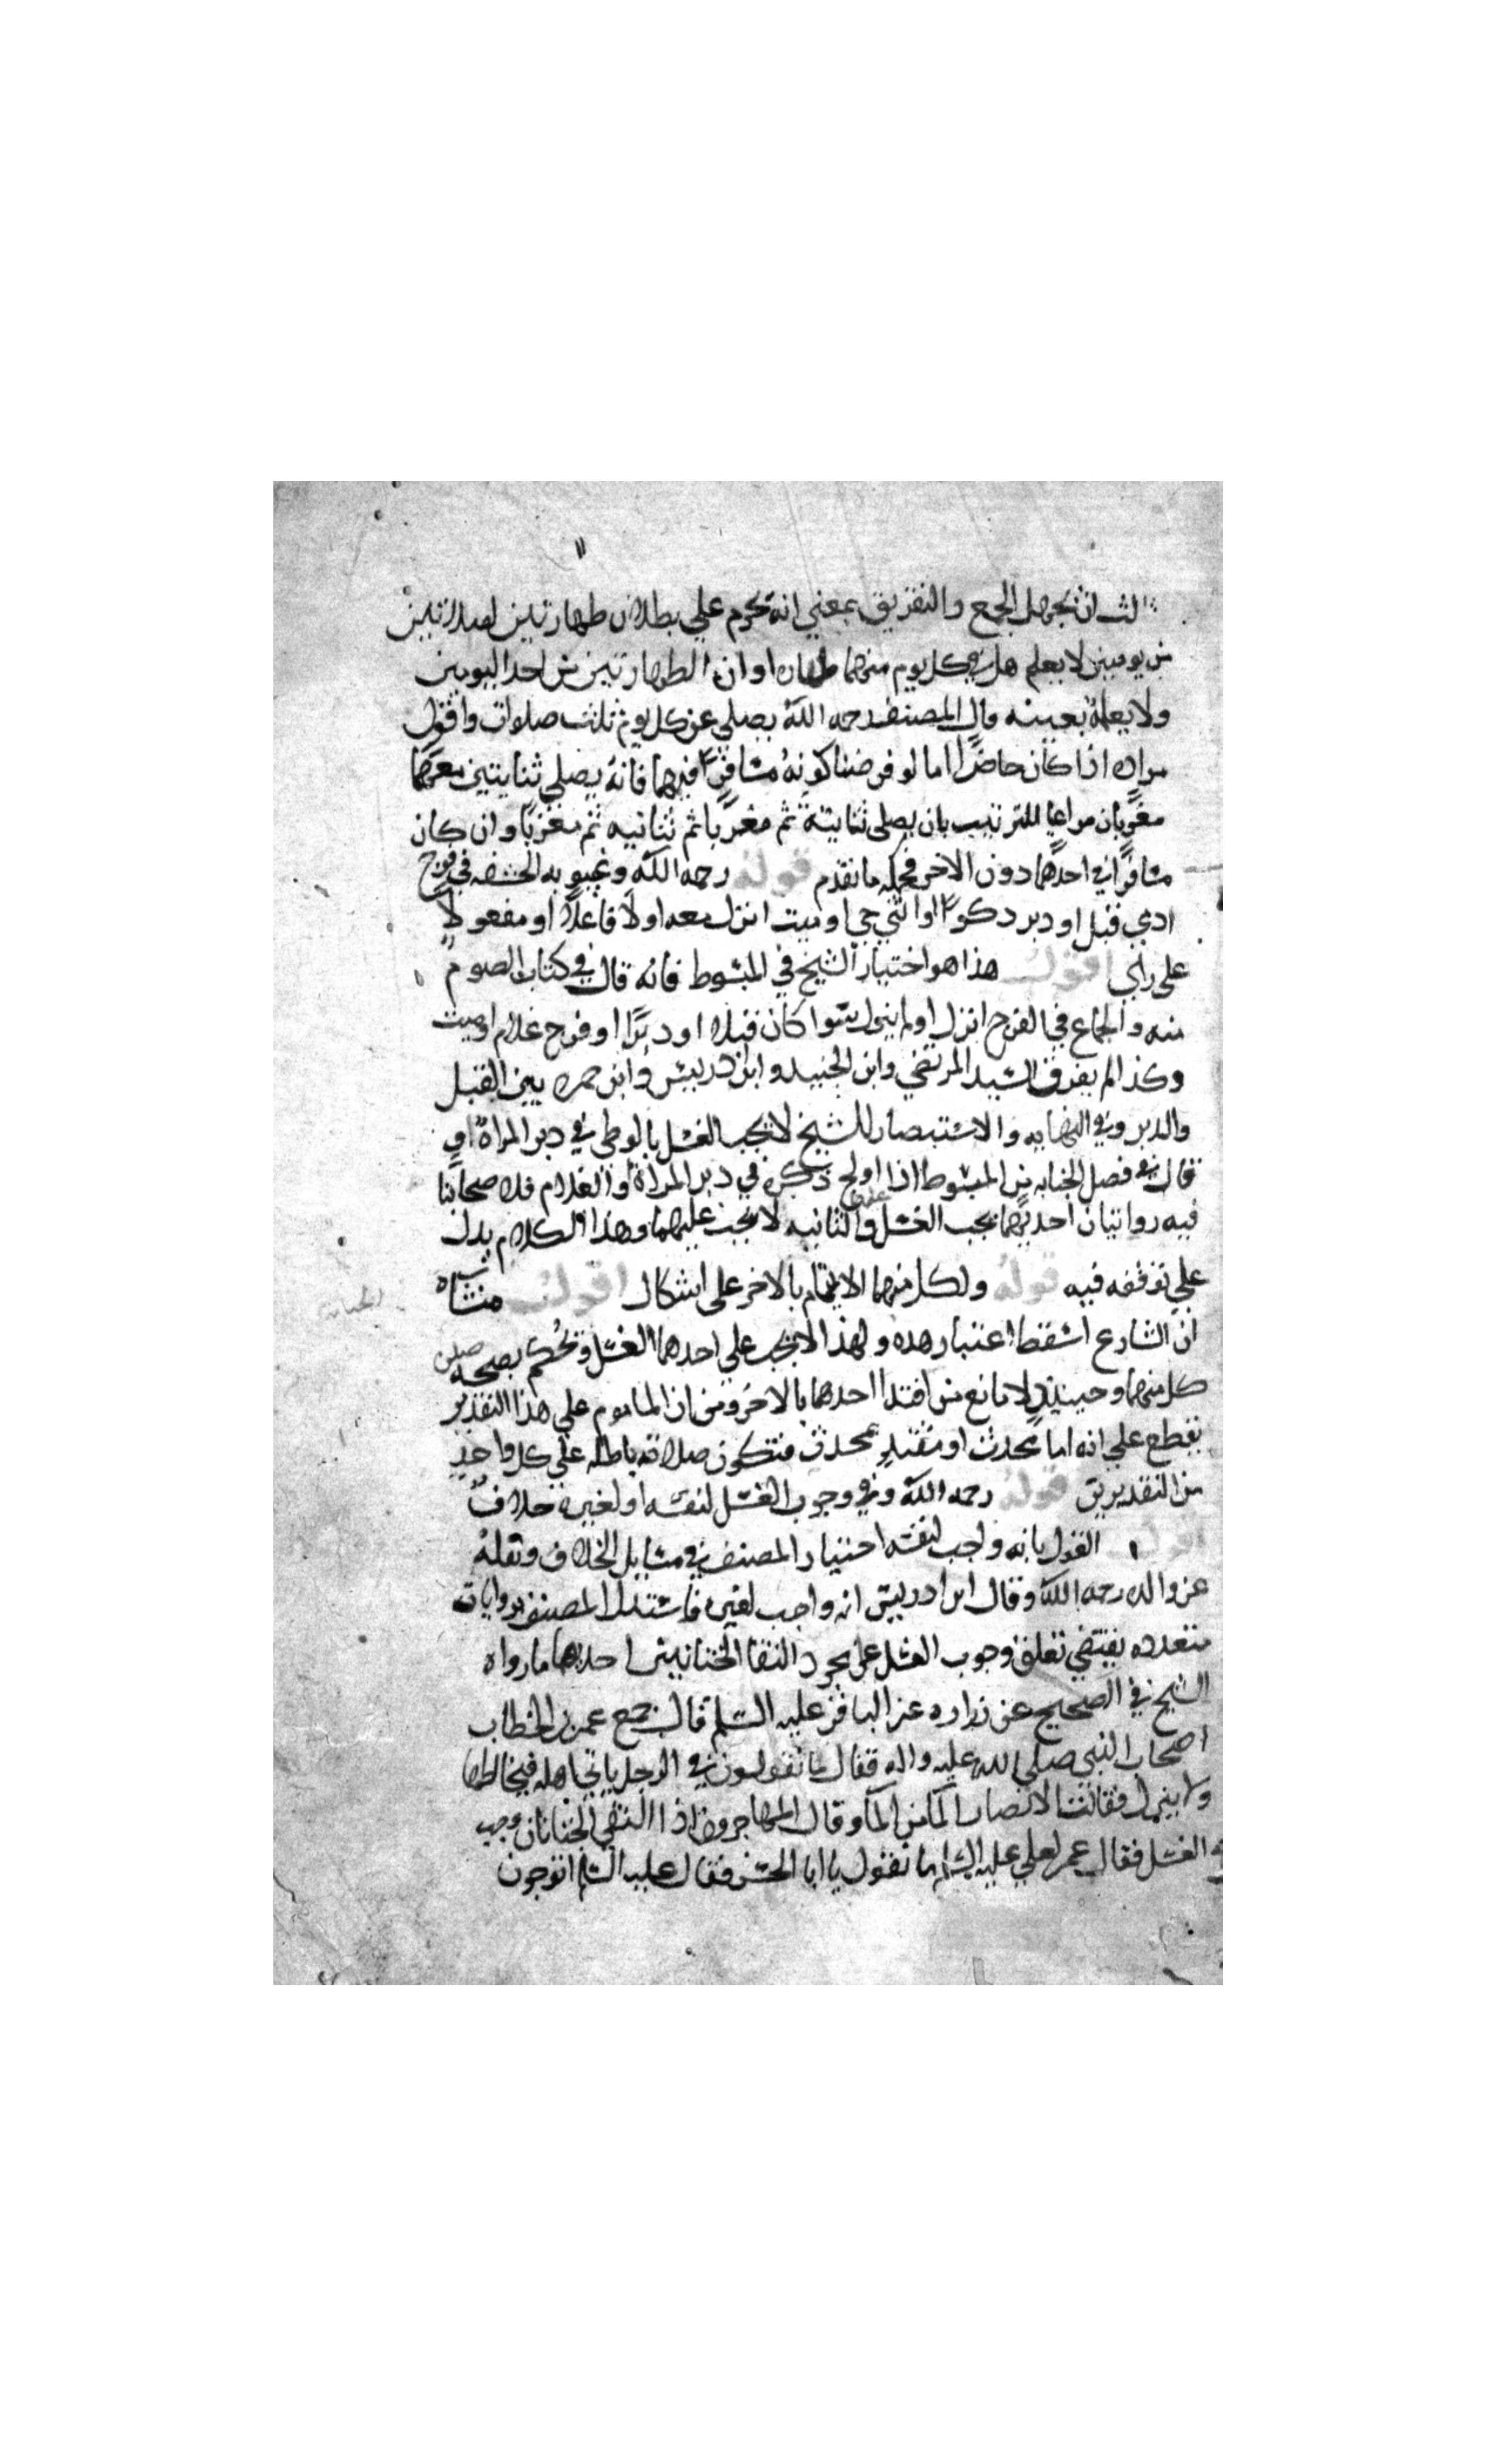 الثالث ان يجهل الجمع والتفريق بمعني انه يحرم علي بطلان طهارتين لصلاتين
من يومين لا يعلم هل في كل يوم منهما طهاره او ان الطهارتين من احد اليومين
ولا يعلمه بعينه قال المصنف رحمه الله يصلي عن كل يوم ثلث صلوات واقول
مراده اذا كان حاضرًا اما لو فرضنا كونه مسافرًا فيهما فانه يصلي ثنايتين معهما
مغربان مراعيا للترتيب بان يصلي ثنايتة ثم مغربًا ثم ثنانيه ثم مغربًا وان كان
مسافرًا في احدهما دون الاخر فحكمه ما تقدم قوله رحمه الله وغيبوبه الحشفه في فرج
ادمي قبل او دبر ذكرًا او انثي حي او ميت انزل معه اولا فاعلًا او مفعولًا
علي راي اقول هذا هو اختيار الشيخ في المبسوط فانه قال في كتاب الصوم
منه والجماع في الفرج انزل او لم ينزل سوا كان قبلا او دبرًا او فرج غلام او ميت
وكذا لم يفرق السيد المرتضي وابن الجنيد وابن ادريس وابن حمزه بين القبل
والدبر وفي النهايه والاستبصار للشيخ لا يجب الغسل بالوطي في دبر المراة او
قال في فصل الجنابه من المبسوط اذا اولج ذكره في دبر المراة او الغلام فلاصحابنا
فيه روايتان احديهما يجب الغسل عليهما والثانيه لا يجب عليهما وهذا الكلام يدل
علي توقفه فيه قوله ولكل منهما الايتمام بالاخر علي اشكال اقول منشاه
ان الشارع اسقط اعتبار هذه الجنابة ولهذا لا يجب علي احدهما الغسل ويحكم بصحه صلوة
كل منهما وحينيذٍ لا مانع من اقتدا احدهما بالاخر ومن ان الماموم علي هذا التقدير
يقطع علي انه اما محدث او مقتدٍ بمحدث فتكون صلاته باطله علي كل واحدٍ
من التقديرين قوله رحمه الله وفي وجوب الغسل لنفسه او لغيره خلافٌ
اقول القول بانه واجب لنفسه اختيار المصنف في مسايل الخلاف ونقلهُ
عن والده رحمه الله وقال ابن ادريس انه واجب لغيره فاستدل المصنف بروايات
متعدده يقتضي تعلق وجوب الغسل علي مجرد التقا الختانين احدها ما رواه
الشيخ في الصحيح عن زراره عن الباقر عليه السلم قال جمع عمر بن الخطاب
اصحاب النبي صلي الله عليه واله فقال ما تقولون في الرجل ياتي اهله فيخالطها
ولا ينزل فقالت الانصار الما من الما وقال المهاجرون اذا التقي الختانان وجب
الغسل فقال عمر لعلي عليه السلم ما تقول يا ابا الحسن فقال عليه السلم اتوجبون